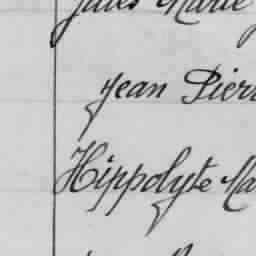 Jules Marie
Jean Pier
Hippolyte Ma